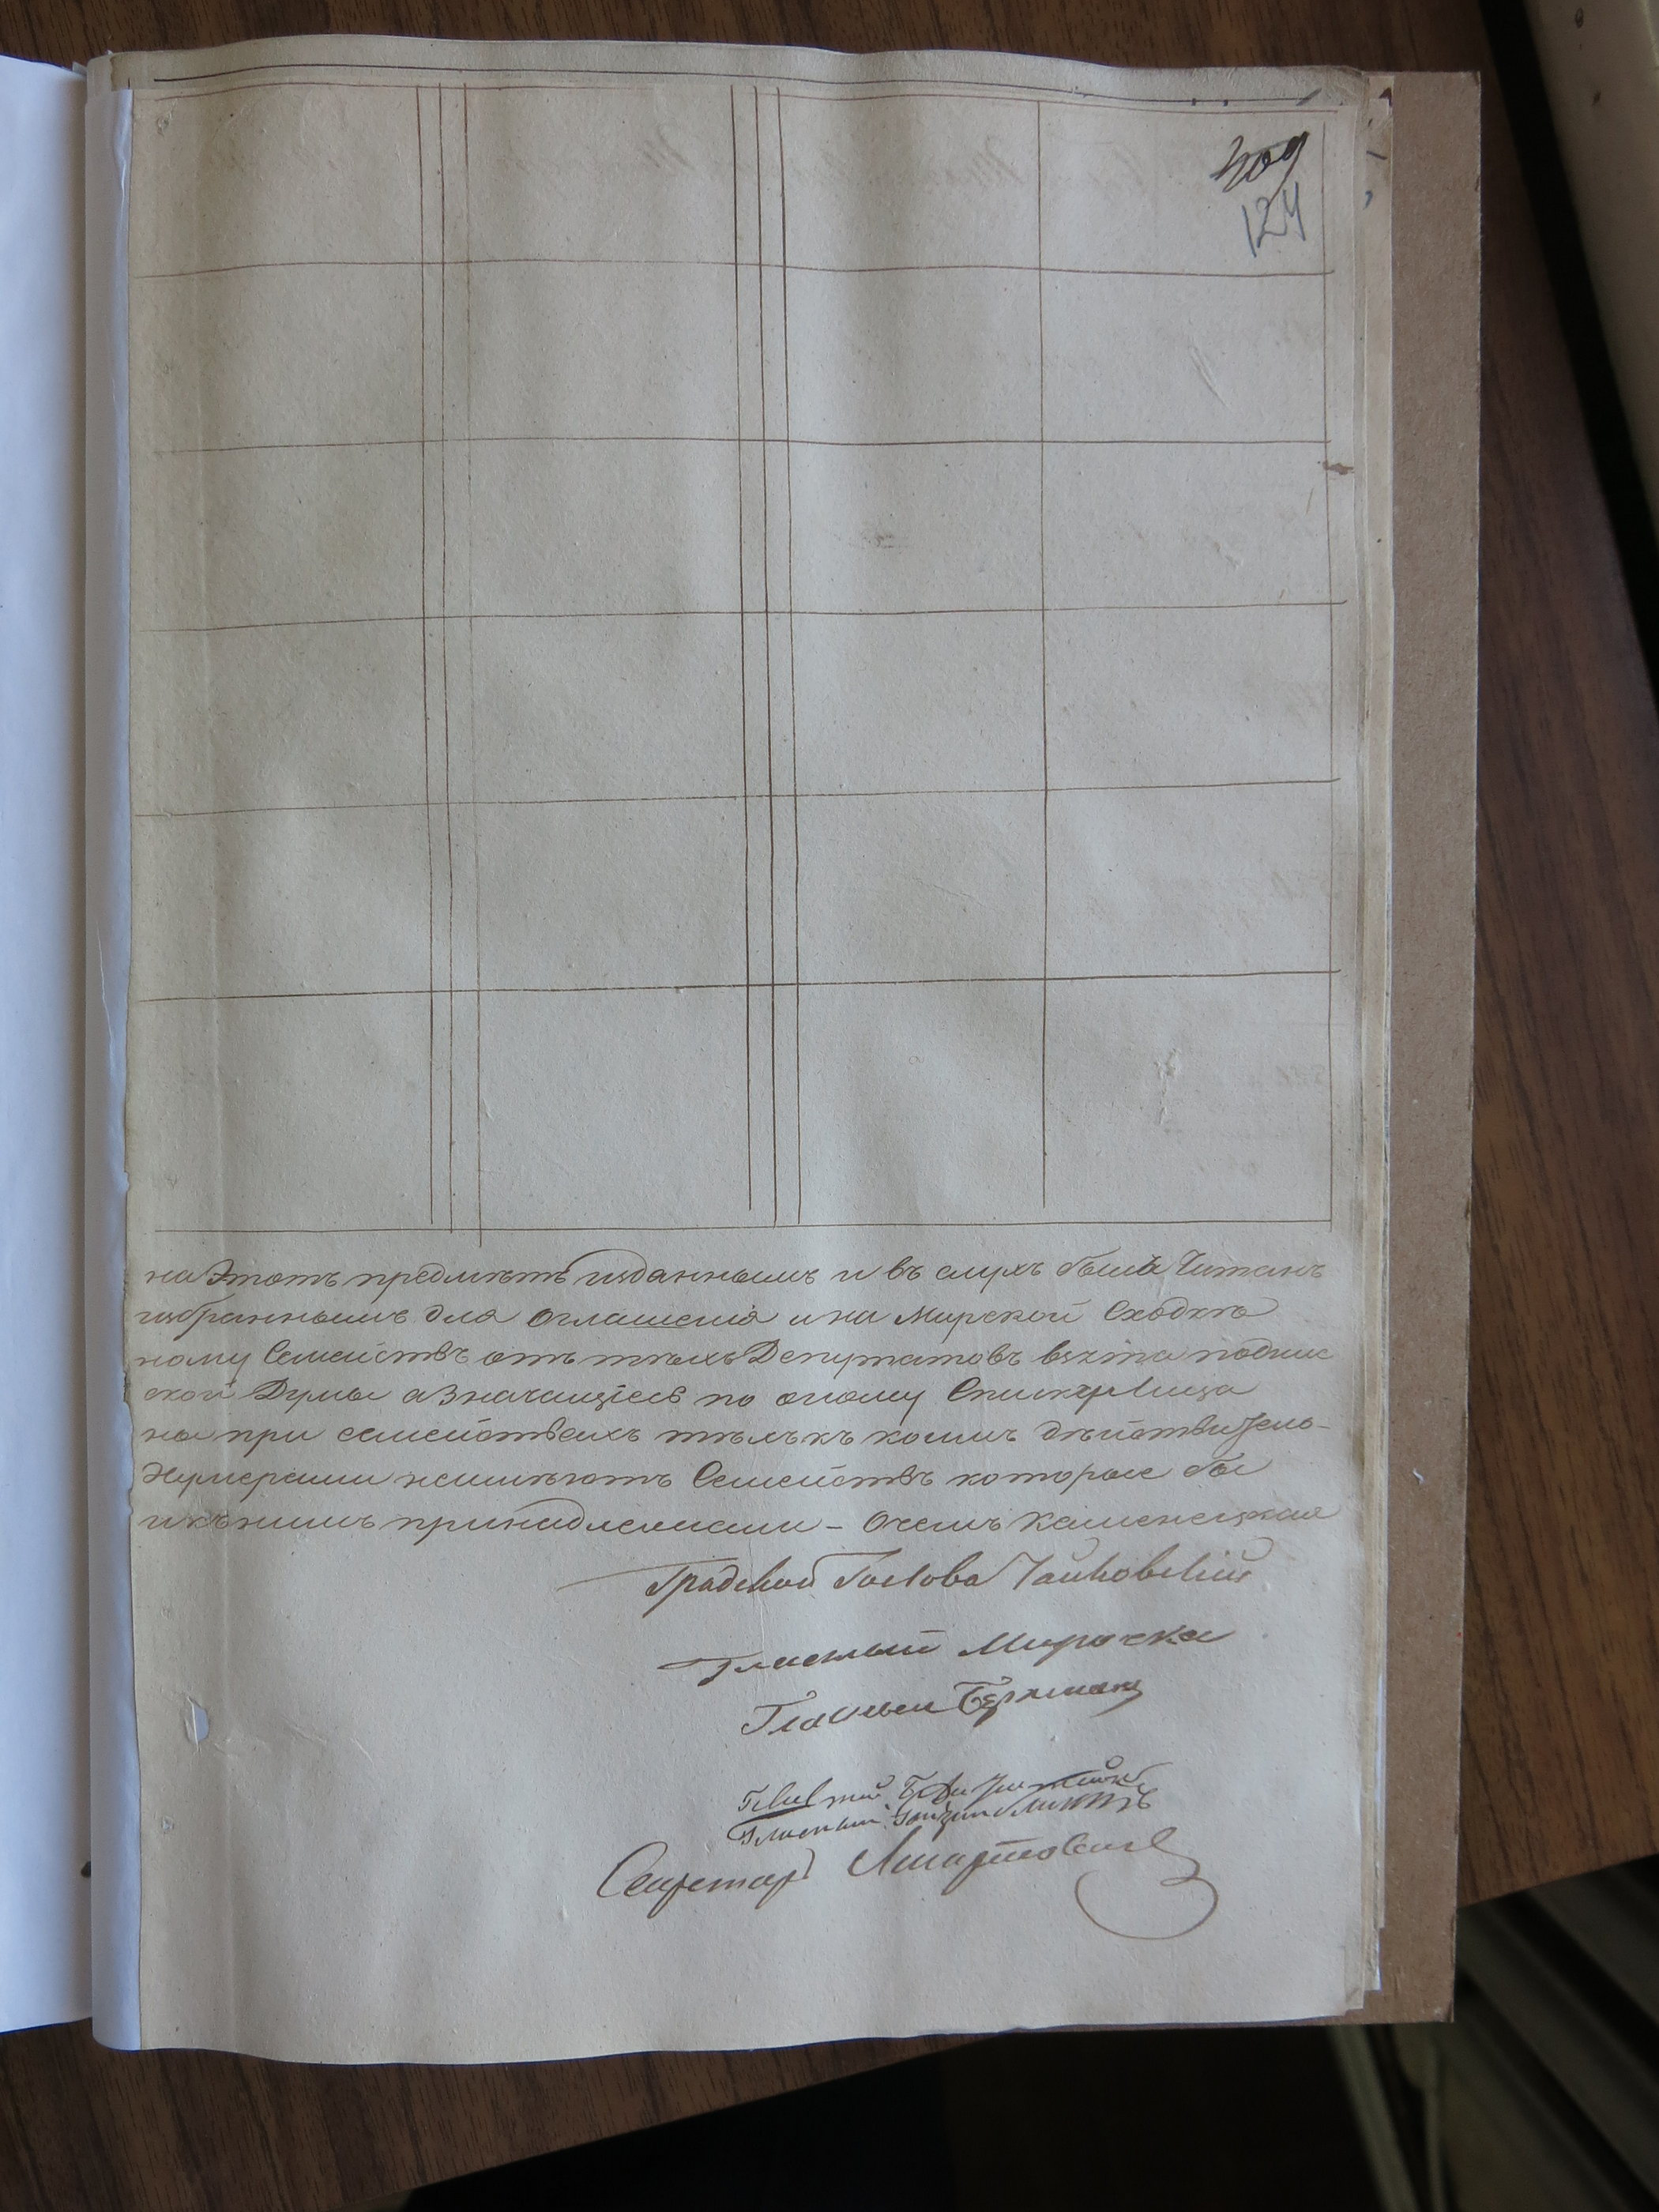 409
124
на Этотъ предмѣтъ изданнымъ и въ слухъ былъ Читанъ
избраннымъ для Оглашенія и на Мирской Сходкѣ
ному Семействъ отъ тѣхъ Депутатовъ взята подпис
ской Думы а Значащіеся по оному Списку Лица
но при семействахъ тѣхъ къ коимъ дѣйствитель-
Нумераціи неимѣютъ Семействъ которые бы
и къ нимъ принадлежали - Очемъ Каменецкая
Градской Голова Чайковскій
Гласный Мирочка
Гласный
Гласный
Гласный
Секретарь